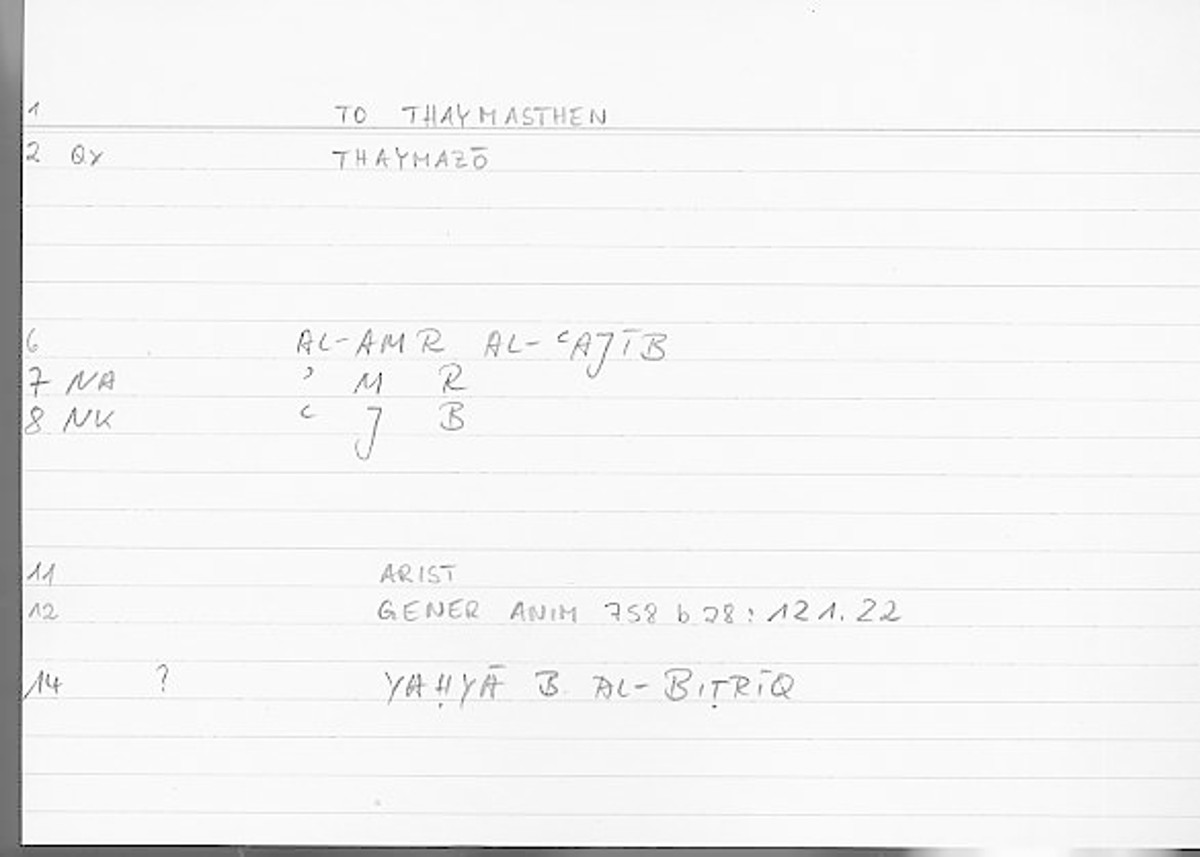 1 TO THAYMASTHEN
2 Qx THAYMAZŌ
6 AL-AMR AL-ʿAJĪB
7 NA ʾ M R
8 NK ʿ J B
11 ARIST
12 GENER ANIM 758 b 28: 121.22
14 ? YAḤYĀ B. AL-BIṬRĪQ